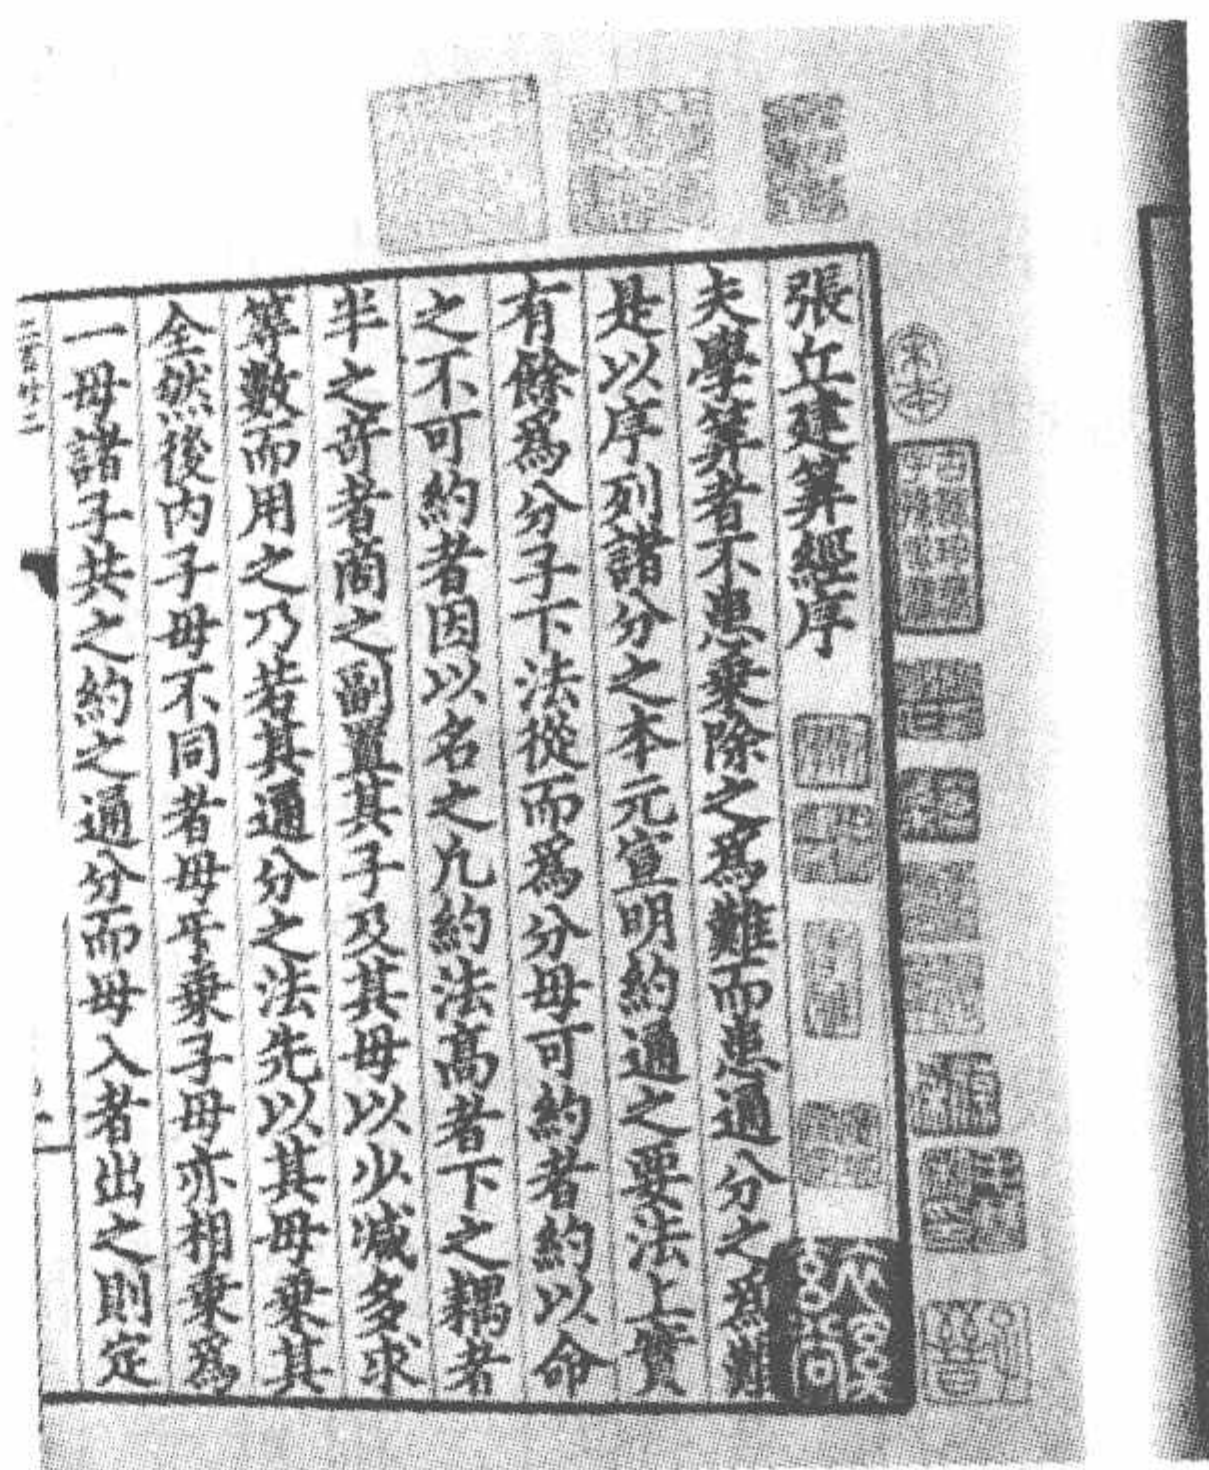 張丘建筭經序
夫學筭者不患乗除之爲難而患通分之爲難
是以序列諸分之本元宣明約通之要法上實
有餘爲分子下法從而爲分母可約者約以命
之不可約者因以名之凢約法髙者下之耦者
半之竒者商之副置其子及其母以少减多求
等數而用之乃若其通分之法先以其母乗其
全然後内子母不同者母乗子母亦相乗爲
一母諸子共之約之通分而母入者出之則定
宋本